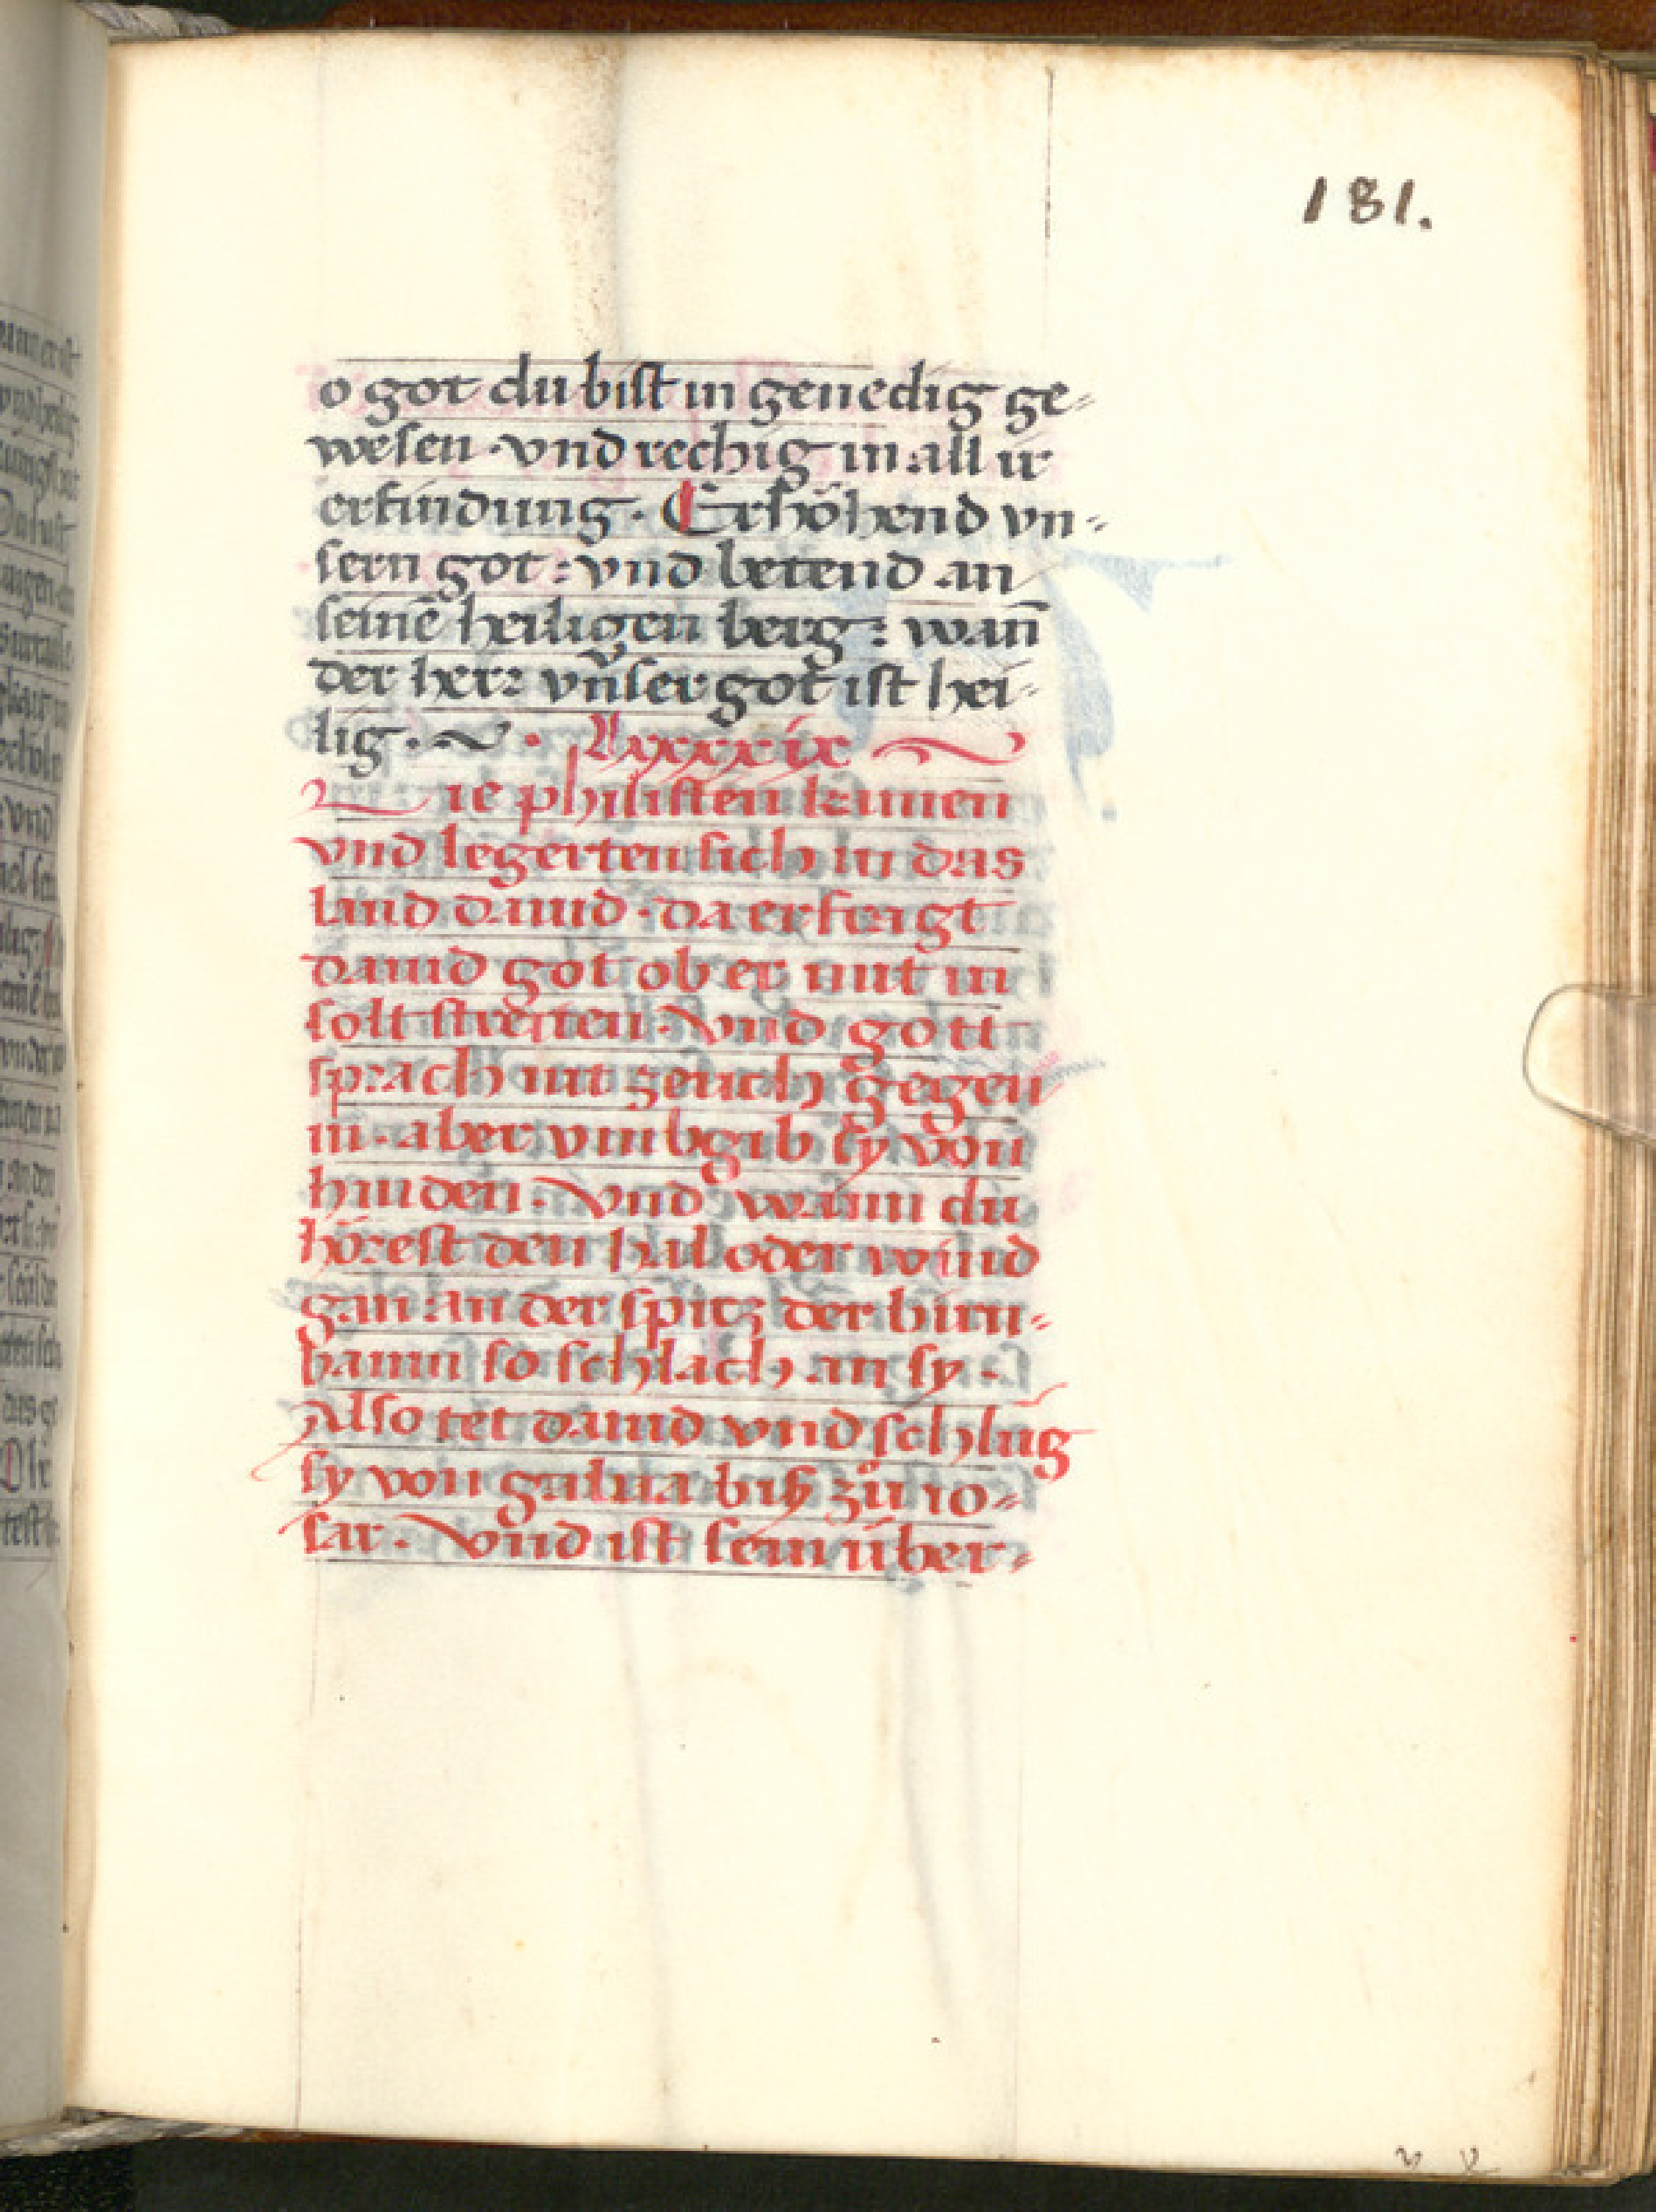 181.
o got du bist in genedig ge-
wesen · vnd rechig in all ir
erfindung · Erhöhend vn-
sern got : vnd betend an
seinē heiligen berg : wañ
der herr vnser got ist hei-
lig · lxxxxix
Die philisten kamen
vnd legerten sich in das
land dauid · da erfragt
dauid got ob er mit in
solt streiten · vnd gott
sprach nit zeuch gegen
in · aber vmbgib sy von
hinden · vnd wann du
hörest den hal oder wind
gan an der spitz der birn-
baum so schlach an sy ·
Also tet dauid vnd schlug
sy von gabaa biß zů io-
sar · vnd ist sein über-